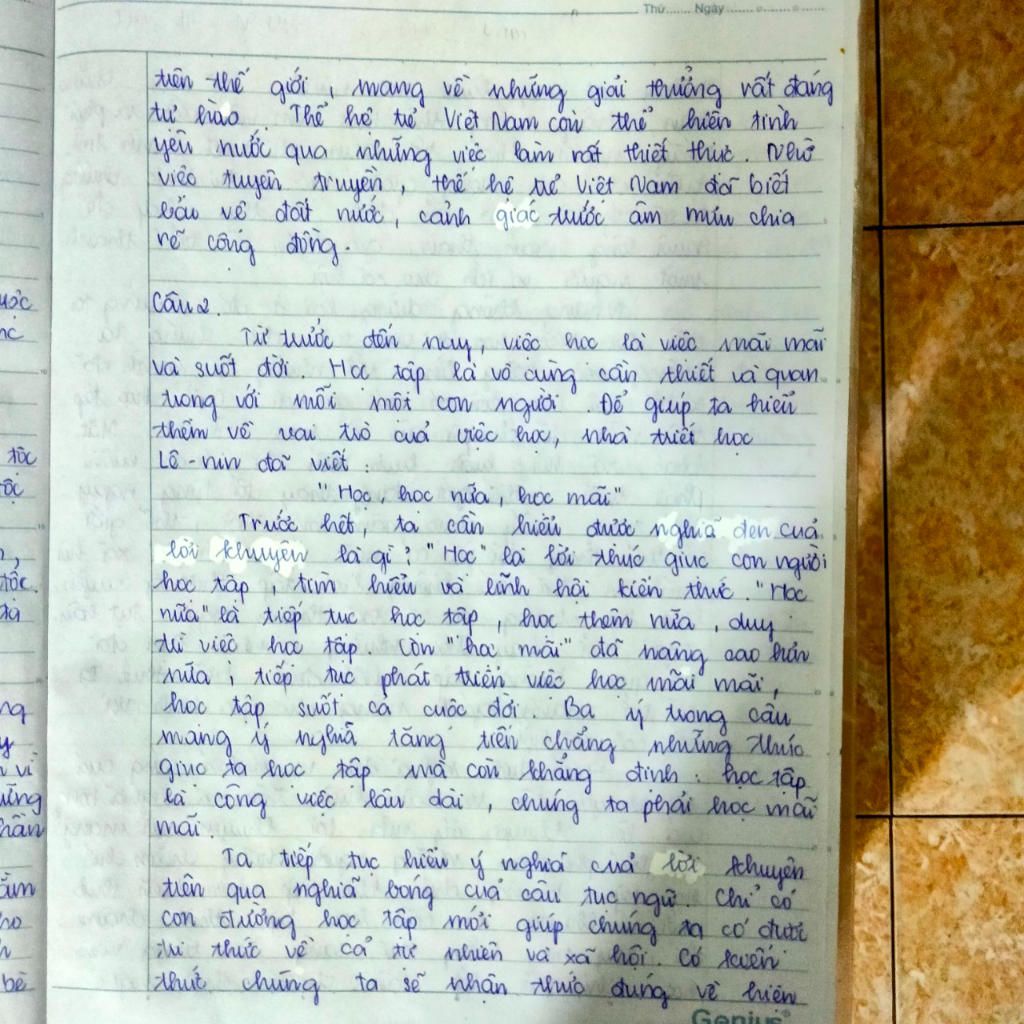 Thứ....... Ngày.......
trên thế giới, mang về những giải thưởng rất đáng
tự hào. Thế hệ trẻ Việt Nam còn thể hiện tình
yêu nước qua những việc làm rất thiết thực. Nhờ
việc tuyên truyền, thế hệ trẻ Việt Nam đã biết
bảo vệ đất nước, cảnh giác trước âm mưu chia
rẽ cộng đồng.
Câu 2.
Từ trước đến nay, việc học là việc mãi mãi
và suốt đời. Học tập là vô cùng cần thiết và quan
trọng với mỗi một con người. Để giúp ta hiểu
thêm về vai trò của việc học, nhà triết học
Lê-nin đã viết:
"Học học nữa, học mãi"
Trước hết, ta cần hiểu được nghĩa đen của
lời khuyên là gì: "Học" là lời thúc giục con người
học tập, tìm hiểu và lĩnh hội kiến thức. "Học
nữa" là tiếp tục học tập, học thêm nữa, duy
trì việc học tập. Còn "học mãi" đã nâng cao hơn
nữa; tiếp tục phát triển việc học mãi mãi,
học tập suốt cả cuộc đời. Ba ý trong câu
mang ý nghĩa tăng tiến chẳng những thúc
giục ta học tập mà còn khẳng định: học tập
là công việc lâu dài, chúng ta phải học mãi
mãi.
Ta tiếp tục hiểu ý nghĩa của lời khuyên
trên qua nghĩa bóng của câu tục ngữ. Chỉ có
con đường học tập mới giúp chúng ta có được
tri thức về cả tự nhiên và xã hội. Có kiến
thức chúng ta sẽ nhận thức đúng về hiện
Genius